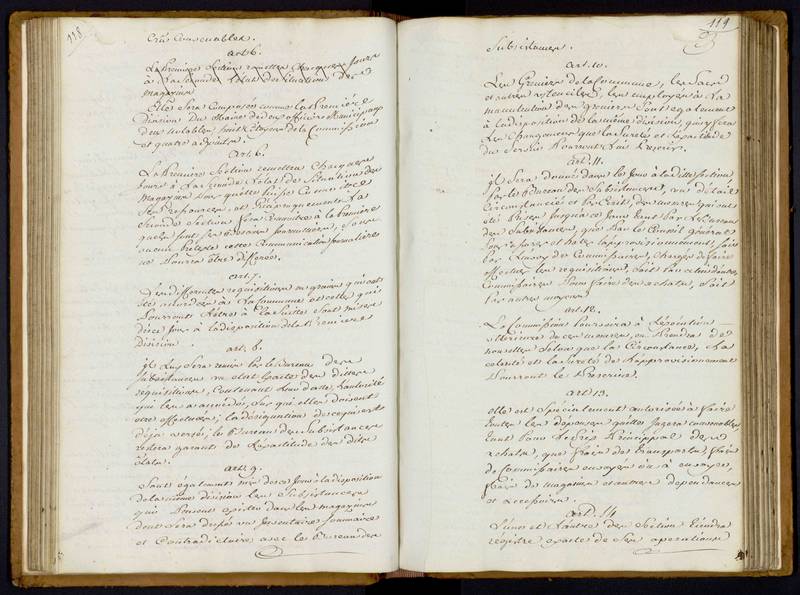 118
cru convenables.
art. 6.
La Première Section remettra chaque jour
à la Seconde l'état de Situation des
magasins
Elle Sera Composée comme la Première
Division du Maire de deux officiers Municipaux
deux notables, huit Citoyens de la Commission
et quatre adjoints.
Art. 6.
La Première Section remettra chaque
jour à la Seconde l'état de Situation des
magasins pour qu'elle puisse Connoître
Ses ressources, et Réciproquement la
Seconde Section fera Connoître à la Première
quels sont les besoins journaliers, sans
aucun Prétexte cette Communication journalière
ne Pourra être différée.
art. 7.
Les différentes requisitions en grains qui ont
été accordées à la Commune et celles qui
Pourront l'être à la Suitte Sont mises
dèce jour à la disposition de la Premiere
Division.
art. 8.
il luy Sera remis par le Bureau des
Subsistances un état exacte des dittes
requisitions, Contenant leur datte, l'autorité
qui les a accordés, Sur qui elles doivent
être effectuées; la désignation de ce qui a été
déjà versé; le Bureau des Subsistances
restera garant de l'exactitude des dits
états.
art. 9.
Sont également mis dèce jour à la disposition
de la même division les Subsistances
qui Peuvent exister dans les magasins
dont Sera dressé un Inventaire Sommaire
et Contradictoire avec le Bureau des
119
Subsistances.
Art. 10.
Les Greniers de la Commune, les Sacs
et autres ustenciles, les employés à la
manutention des greniers Sont également
à la disposition de la même division, qui y fera
Les Changemens que la Sureté et l'exactitude
du Service Pourront lui
Art. 11.
il Sera donné dans le jour à la ditte Section
Par le Bureau des Subsistances, un détail
Circonstancié et Par Ecrit des mesures qui ont
été Prises jusqu'à ce jour tant Par le Bureau
des Subsistances, que Par le Conseil général
Pour et hater l'approvisionnement, soit
Par l'envoy de Commissaires, Chargés de faire
effectuer les requisitions, Soit Par celui d'autres
Commissaires Pour faire des achats, Soit
Par autres moyens
art. 12.
La Commission Poursuivra à l'exécution
ultérieure de ces mesures, en Prendra de
nouvelles Selon que la Circonstance, la
celerité et la Sureté de l'approvisionnement
Pourront le Prescrire.
Art. 13.
elle est Spécialement autorisée à faire
toutes les dépenses qu'elle jugera convenables
tant Pour le Prix Principal des
achats, que frais de transports, frais
de Commissaires envoyés ou à envoyer,
frais de magasins et autres dépendances
et accessoires.
Art. 14
L'une et l'autre des Section tiendra
registre exacte de Ses operations